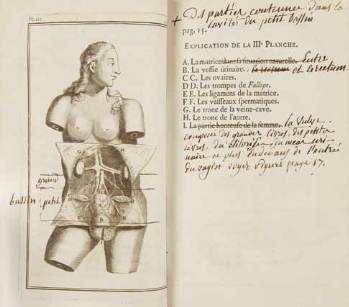 + Des parties contenues dans la
cavité du petit bassin
pag. 15.
EXPLICATION DE LA IIIe PLANCHE.
A. La matrice dans sa situation naturelle. Entre
B. La vessie urinaire. et le rectum.
C C. Les ovaires.
D D. Les trompes de Fallope.
E E. Les ligamens de la matrice.
F F. Les vaisseaux spermatiques.
G. Le tronc de la veine-cave.
H. Le tronc de l'aorte.
I. La partie honteuse de la femme. la Vulve
composée des grandes lèvres, des petites
lèvres, du clitoris, du méat uri-
naire et plus en dedans de l'entrée
du vagin voyez figure page 67.
bassin petit